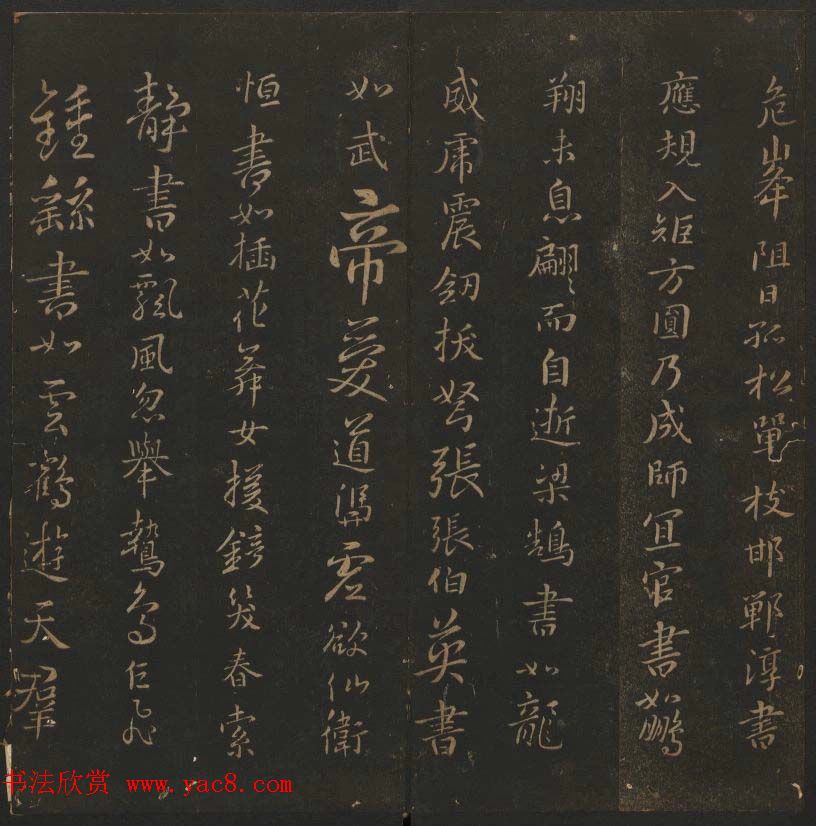 危峯阻日孤松單枝邯鄲淳書
應規入矩方圓乃成師宜官書如鵬
翔未息翩翩而自逝梁鵠書如龍
威虎震劒拔弩張張伯英書
如武帝愛道馮虛欲仙衛
恒書如插花舞女援鏡笑春索
靜書如飄風忽舉鷙鳥乍飛
鍾繇書如雲鶴遊天群
书法欣赏 www.yac8.com